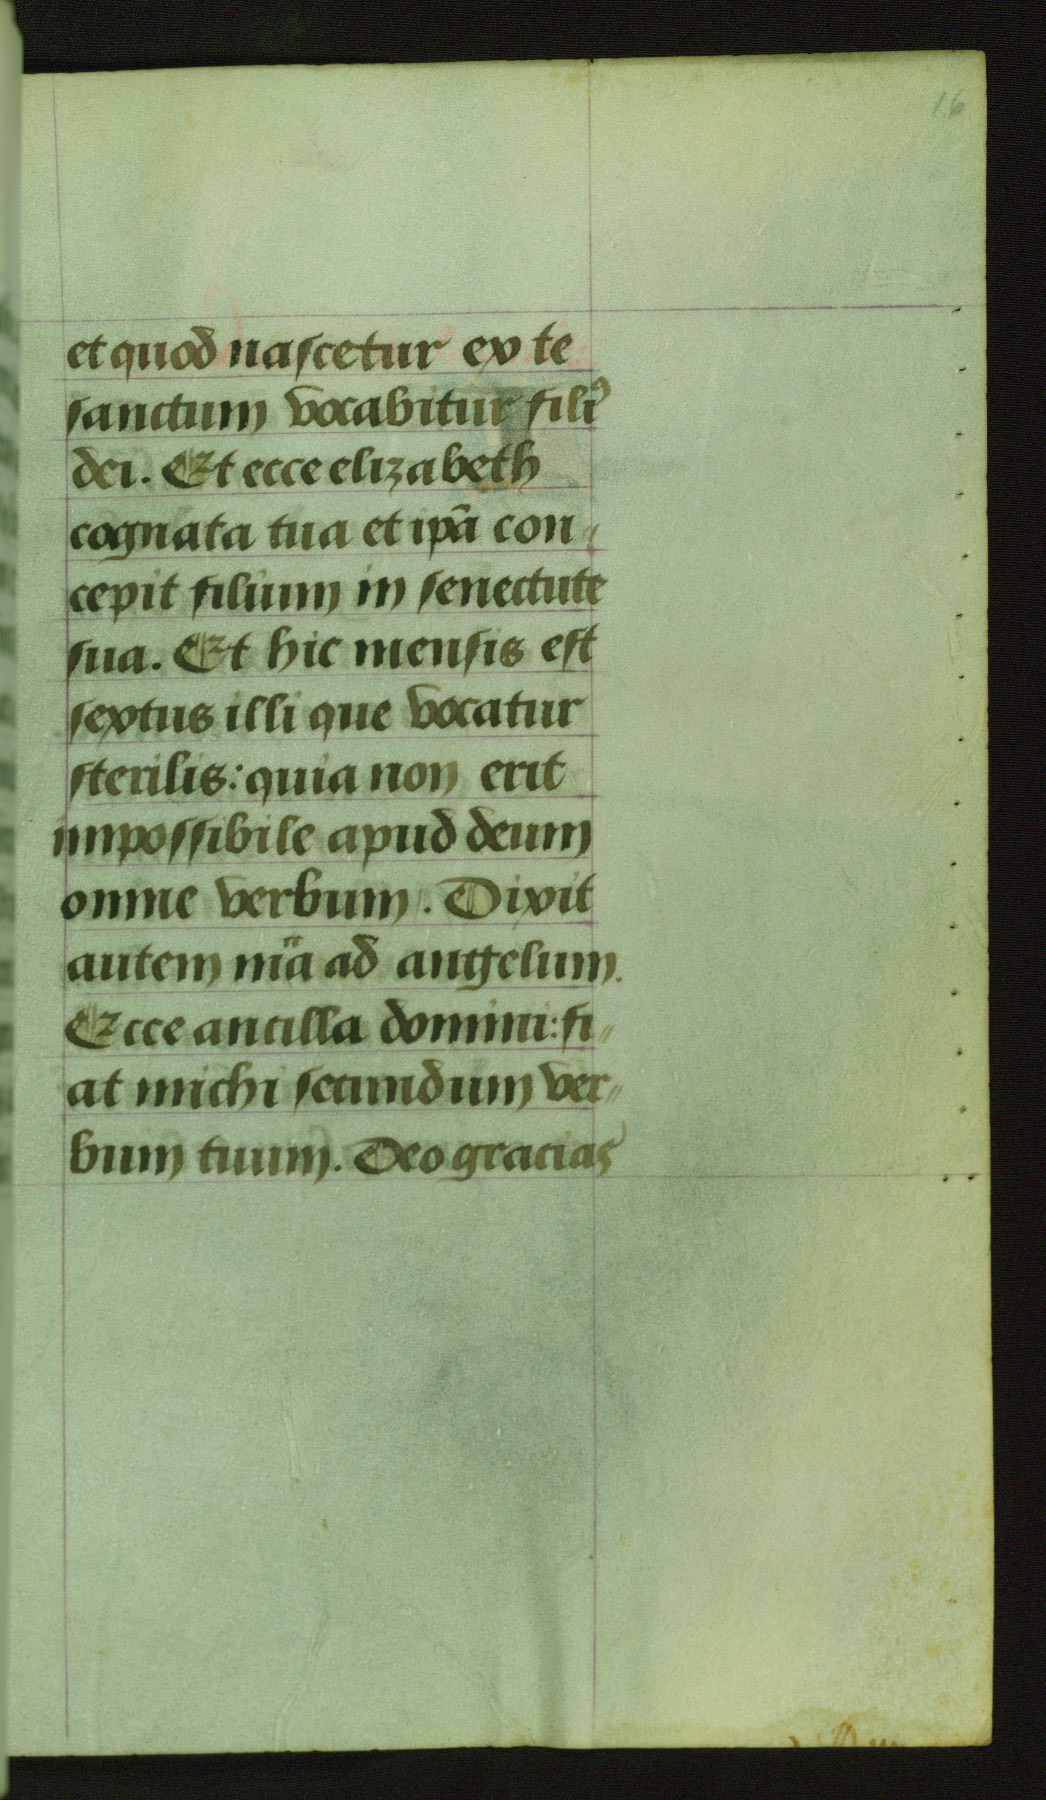 16
et quod nascetur ex te
sanctum vocabitur filiꝰ
dei. Et ecce elizabeth
cognata tua et ip̄a con-
cepit filium in senectute
sua. Et hic mensis est
sextus illi que vocatur
sterilis: quia non erit
impossibile apud deum
omne verbum. Dixit
autem mͣa ad angelum.
Ecce ancilla domini: fi-
at michi secundum ver-
bum tuum. Deo gracias